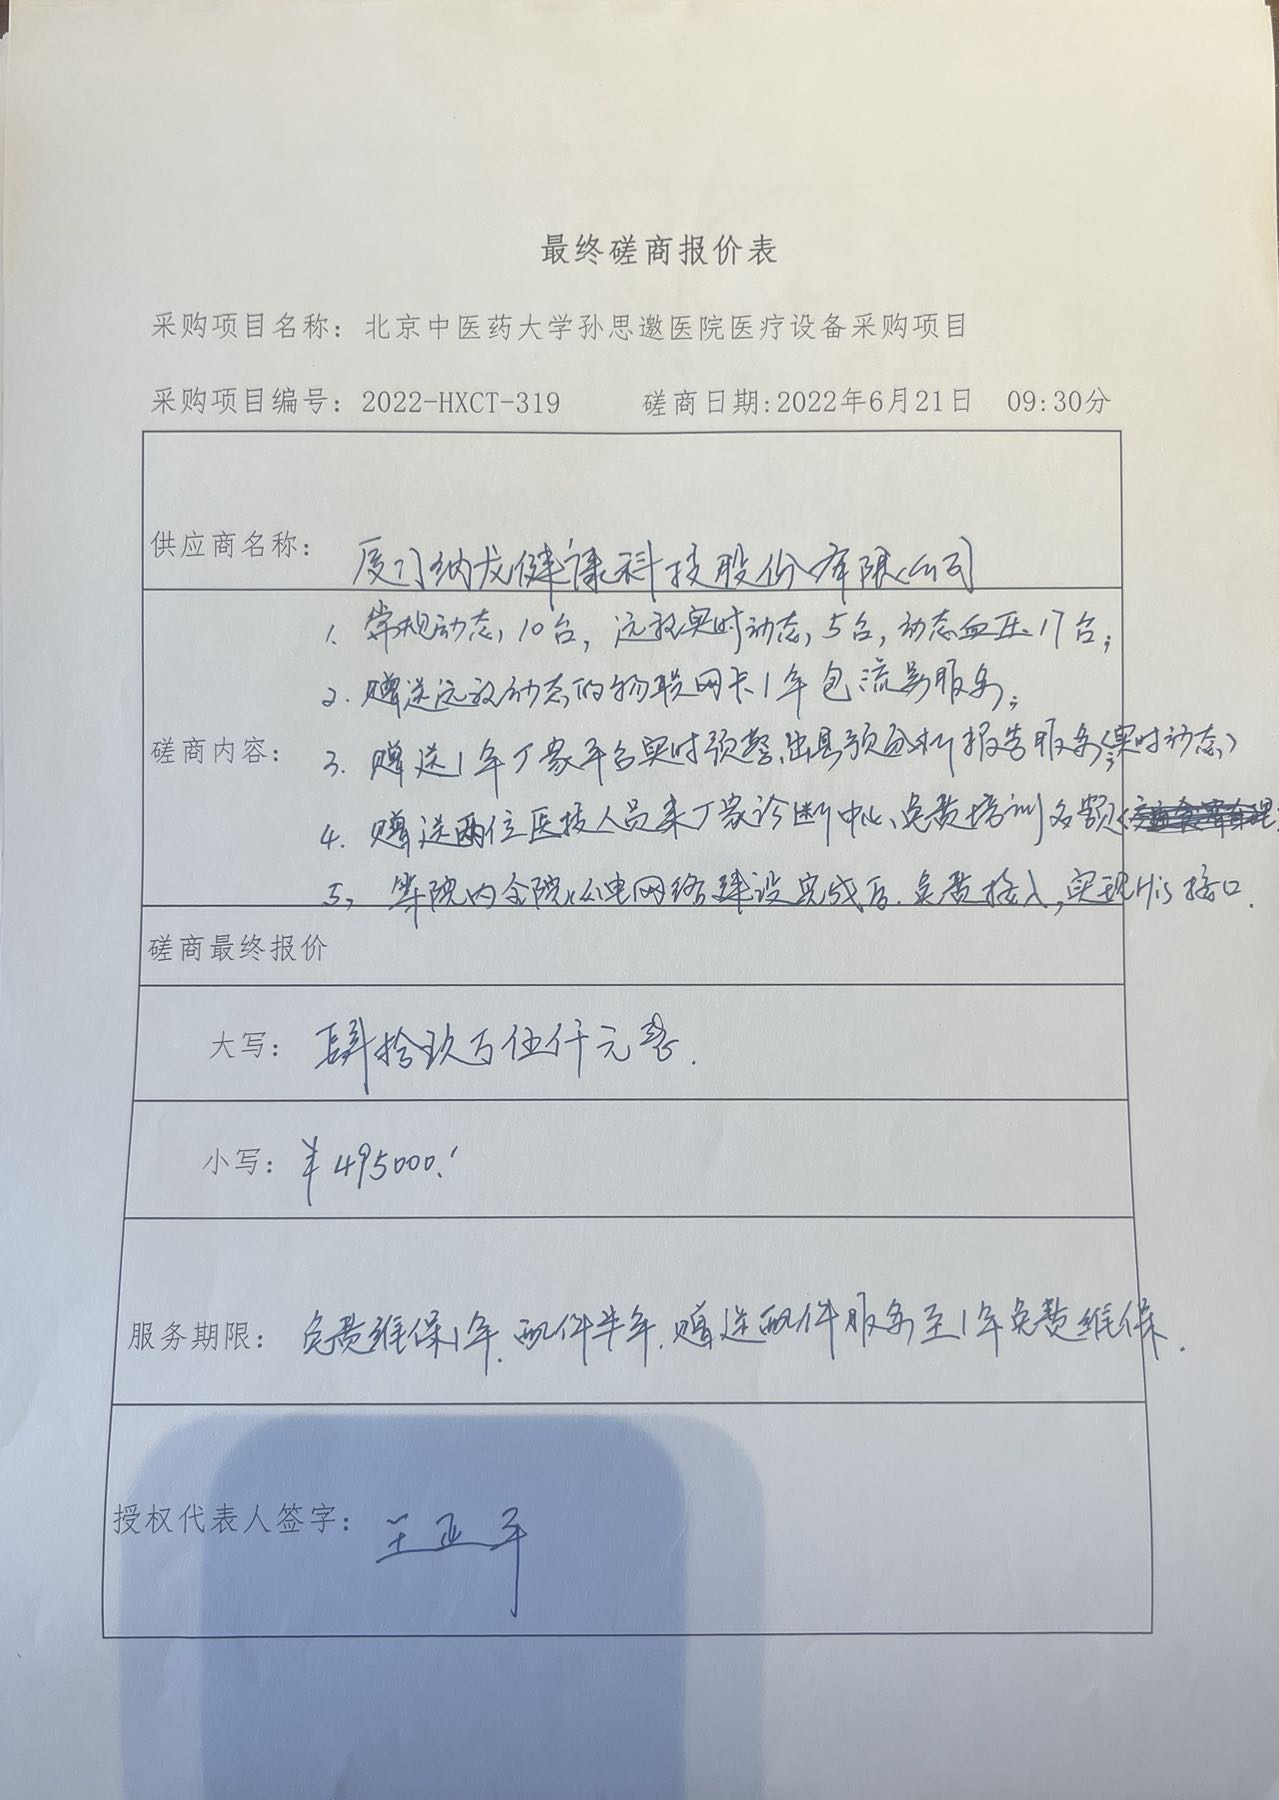 最终磋商报价表
采购项目名称：北京中医药大学孙思邈医院医疗设备采购项目
采购项目编号：2022-HXCT-319 磋商日期:2022年6月21日 09:30分
供应商名称： 厦门纳龙健康科技股份有限公司
1. 常规动态,10台，远程实时动态,5台，动态血压17台；
2. 赠送远程动态的物联网卡1年包流量服务；
磋商内容： 3. 赠送1年厂家平台实时预警、出具预分析报告服务（实时动态）
4. 赠送两位医技人员来厂家诊断中心、免费培训名额
5、等院内全院心电网络建设完成后.免费接入，实现His接口.
磋商最终报价
大写： 肆拾玖万伍仟元整.
小写：￥495000.
服务期限： 免费维保1年.配件半年.赠送配件服务至1年免费维保.
授权代表人签字： 王亚平